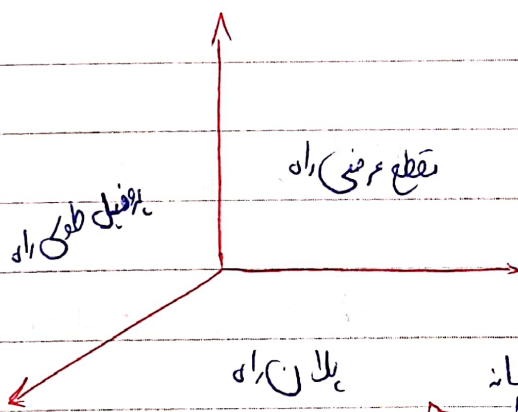 مقطع عرضی راه
پروفیل طولی راه
پلان راه